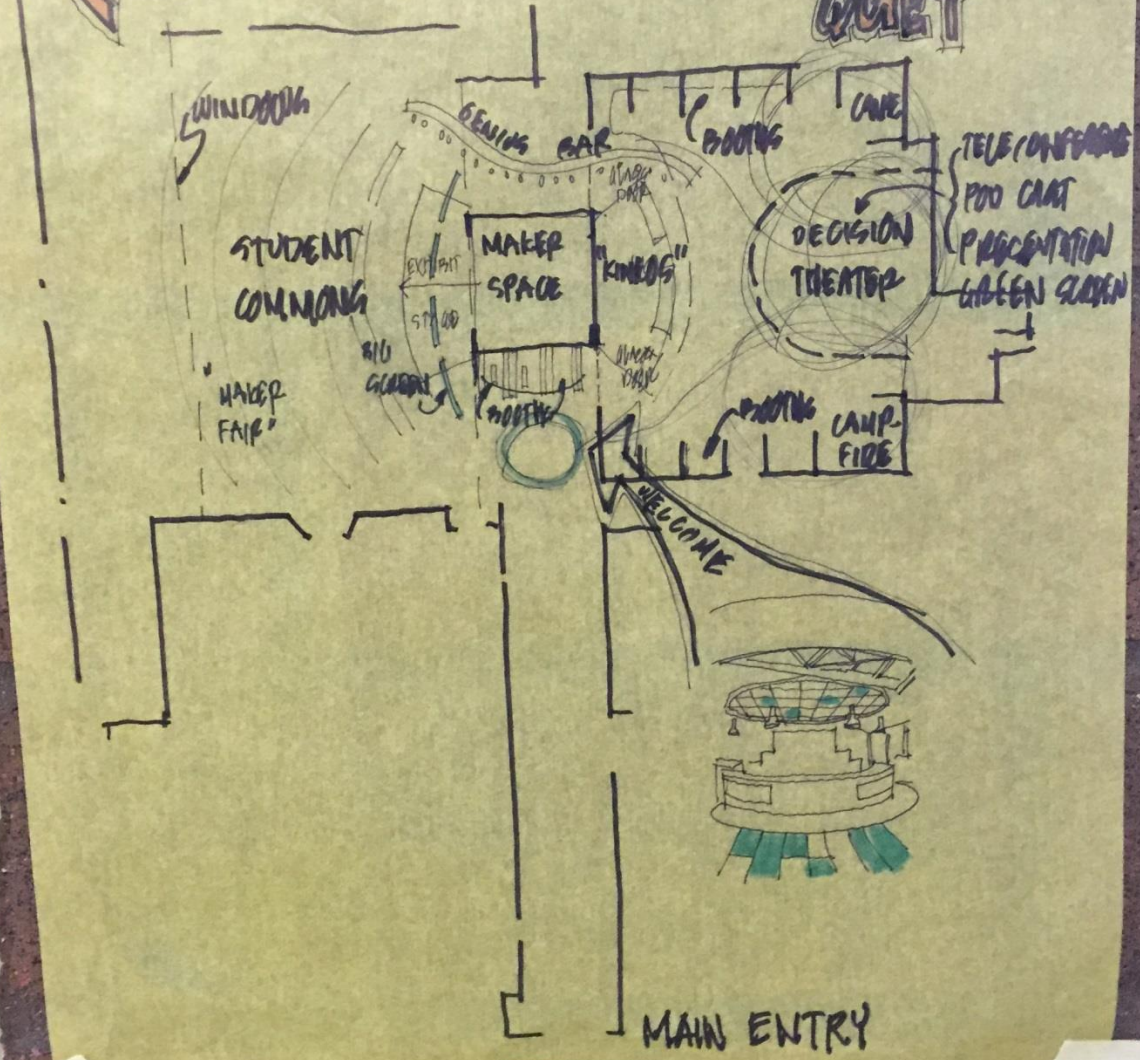 QUIET
WINDOWS
GENIUS BAR
BOOTHS
CAVE
TELECONFERENCE
POD CAST
PRESENTATION
GREEN SCREEN
STUDENT
COMMONS
MAKER
SPACE
"KINKOS"
DECISION
THEATER
EXHIBIT
BIG
SCREEN
"MAKER
FAIR"
BOOTHS
BOOTHS
CAMP-
FIRE
WELCOME
MAIN ENTRY